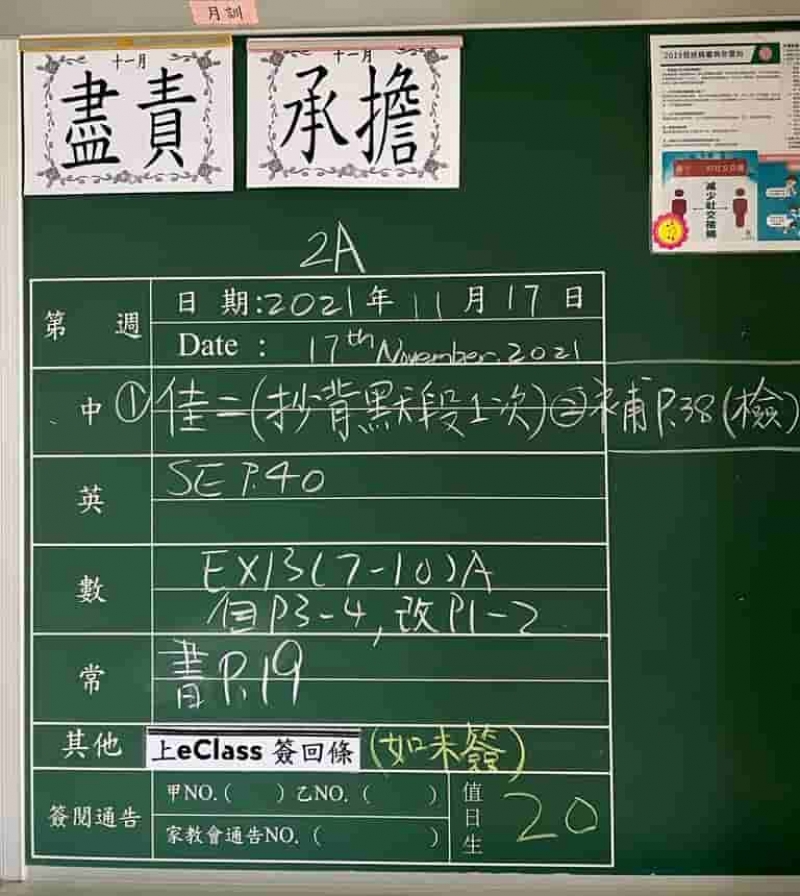 月訓
十一月
盡責
十一月
承擔
减少社交接觸
2A
第 週
日 期:2021年 11 月 17 日
Date : 17th November, 2021
中 ①佳二(抄背默段1次)②補P.38(檢)
英 SE P.40
數 EX13(7-10)A
P3-4,改P1-2
常 書P.19
其他 上eClass 簽回條 (如未簽)
簽閱通告 甲NO. ( ) 乙NO. ( )
家教會通告NO. ( )
值日生 20